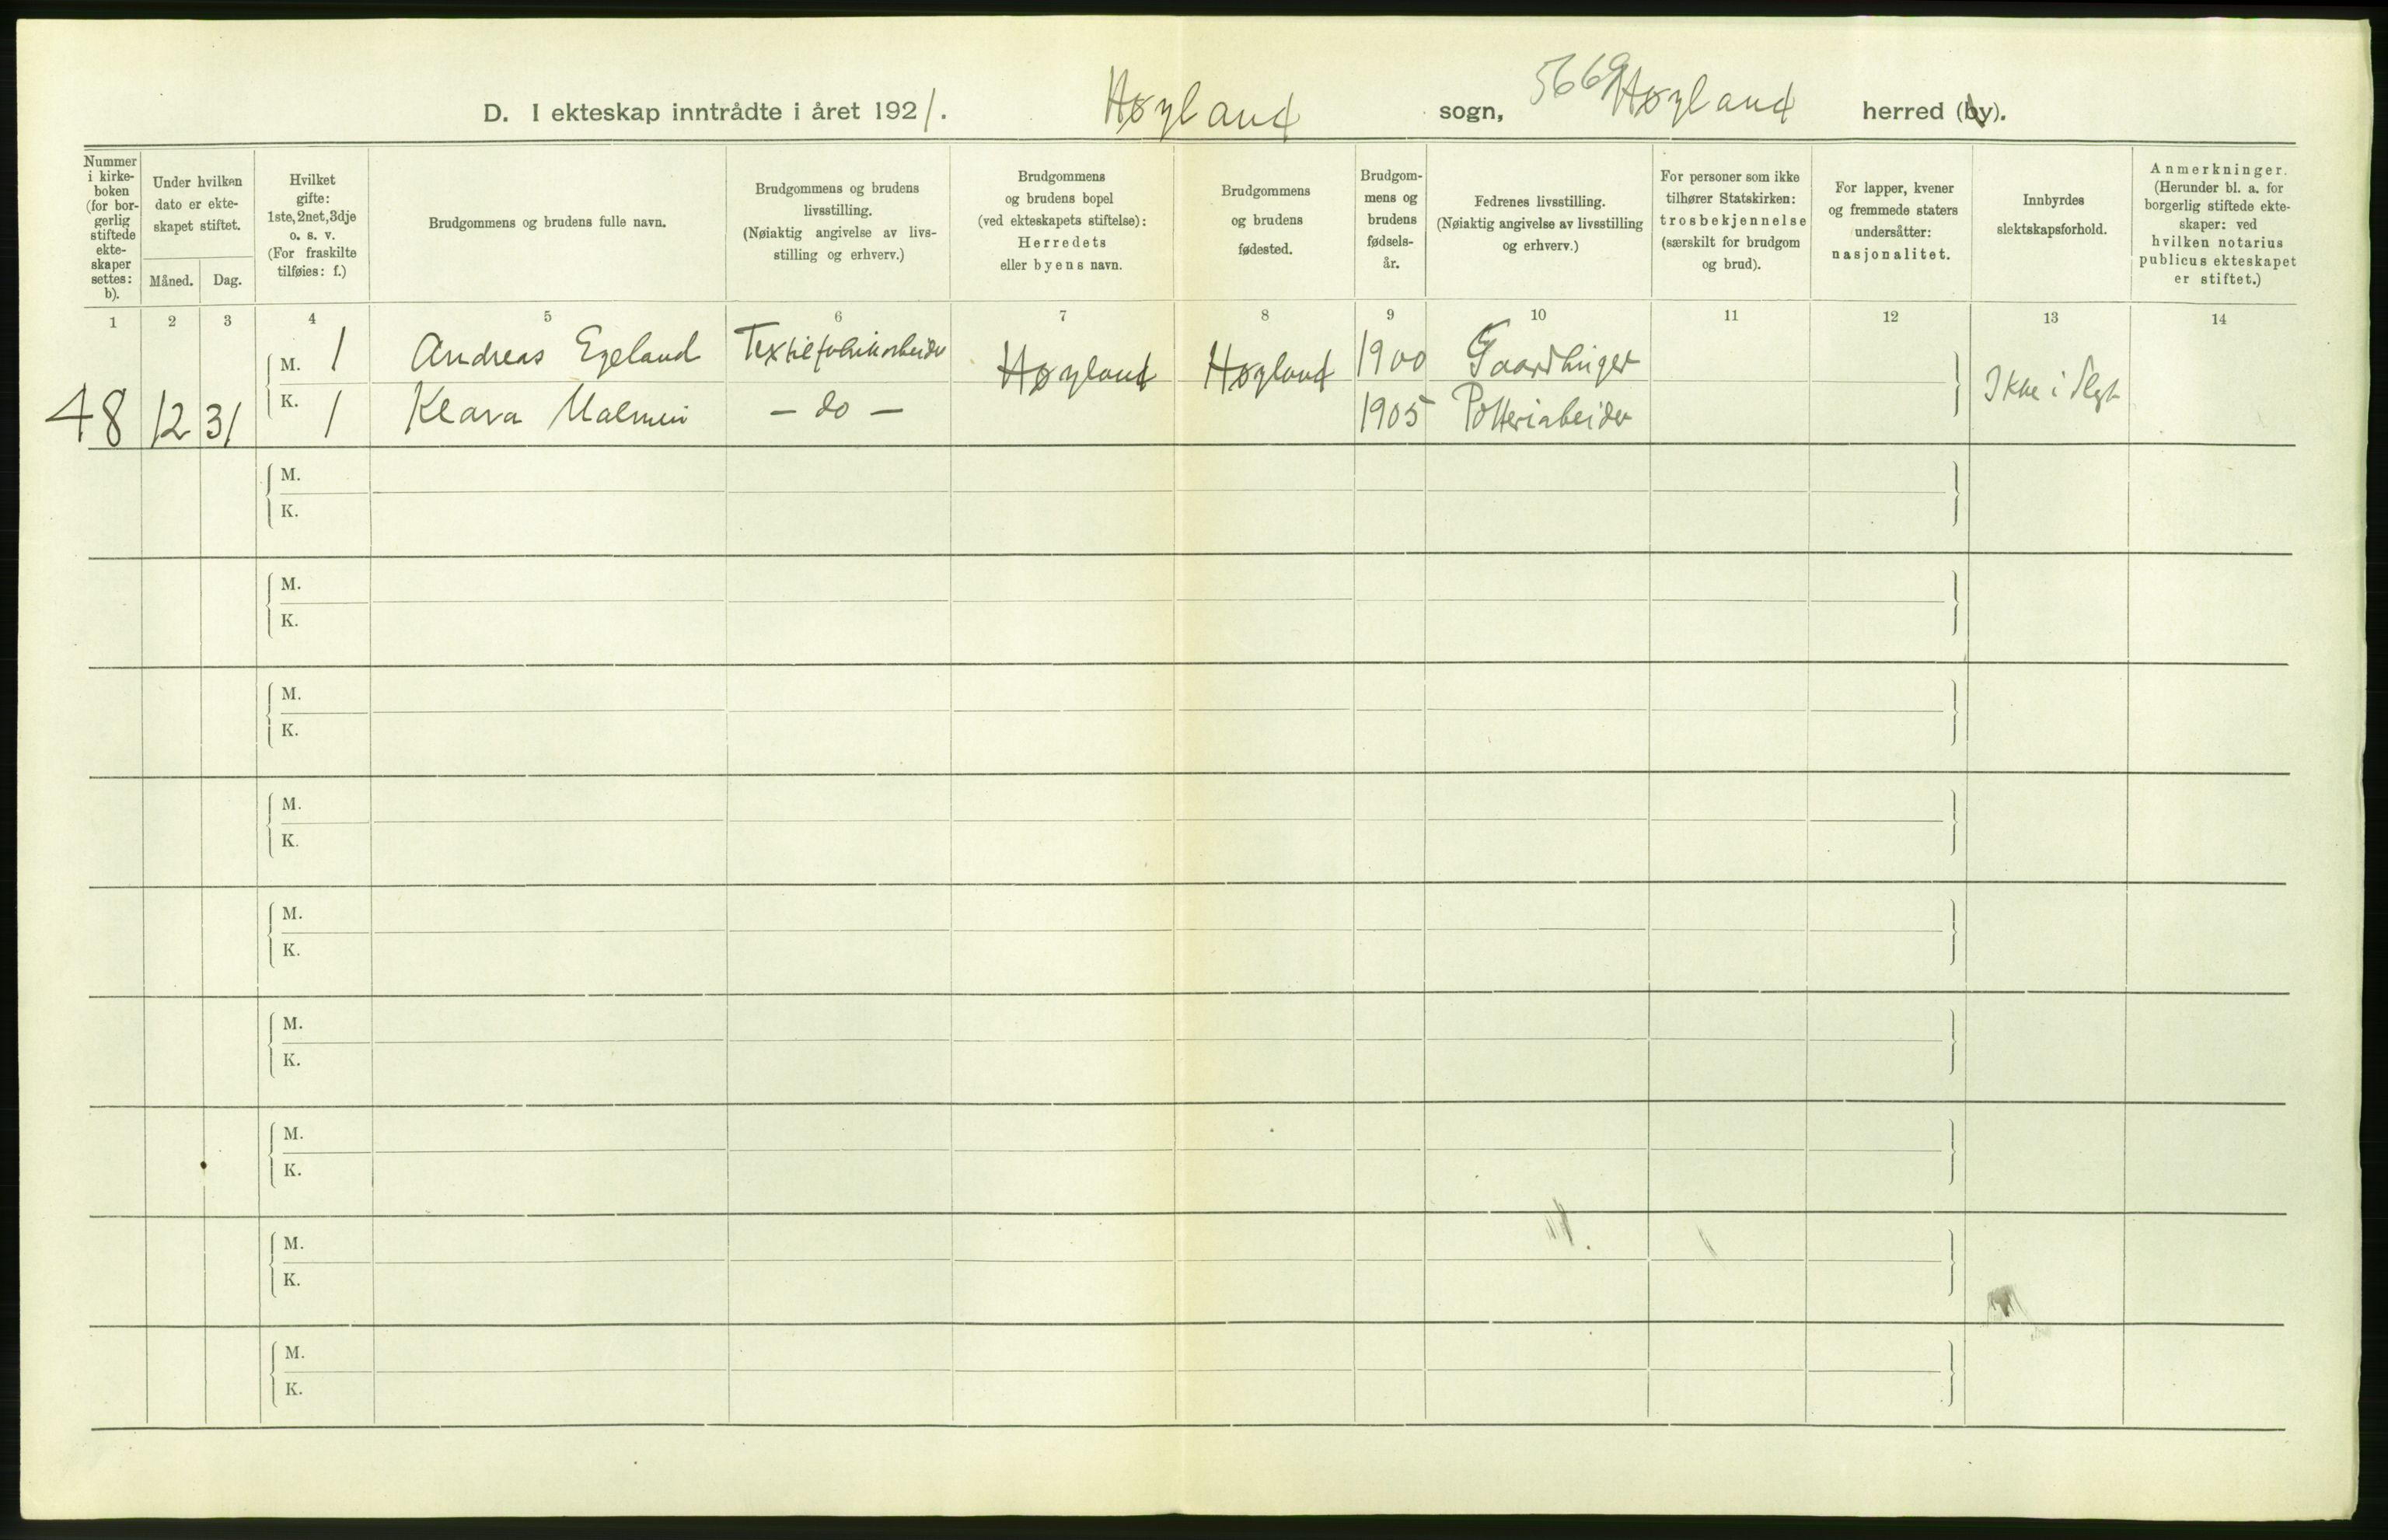 5669
D. I ekteskap inntrådte i året 1921. Høyland sogn, Høyland herred (by).
Nummer i kirke-boken (for bor-gerlig stiftede ekte-skaper settes: b).
Under hvilken dato er ekte-skapet stiftet.
Måned. Dag.
Hvilket gifte: 1ste, 2net, 3dje o. s. v. (For fraskilte tilføies: f.)
Brudgommens og brudens fulle navn.
Brudgommens og brudens livsstilling. (Nøiaktig angivelse av livs-stilling og erhverv.)
Brudgommens og brudens bopel (ved ekteskapets stiftelse): Herredets eller byens navn.
Brudgommens og brudens fødested.
Brudgom-mens og brudens fødsels-år.
Fedrenes livsstilling. (Nøiaktig angivelse av livsstilling og erhverv.)
For personer som ikke tilhører Statskirken: trosbekjennelse (særskilt for brudgom og brud).
For lapper, kvener og fremmede staters undersåtter: nasjonalitet.
Innbyrdes slektskapsforhold.
Anmerkninger. (Herunder bl. a. for borgerlig stiftede ekte-skaper: ved hvilken notarius publicus ekteskapet er stiftet.)
1 2 3 4 5 6 7 8 9 10 11 12 13 14
M. 1 Andreas Egeland Textilfabrikarbeider Høyland Høyland 1900 Gaardbruger
48 12 31 K. 1 Klara Malmin - do - 1905 Potteriarbeider Ikke i Slegt
M.
K.
M.
K.
M.
K.
M.
K.
M.
K.
M.
K.
M.
K.
M.
K.
M.
K.